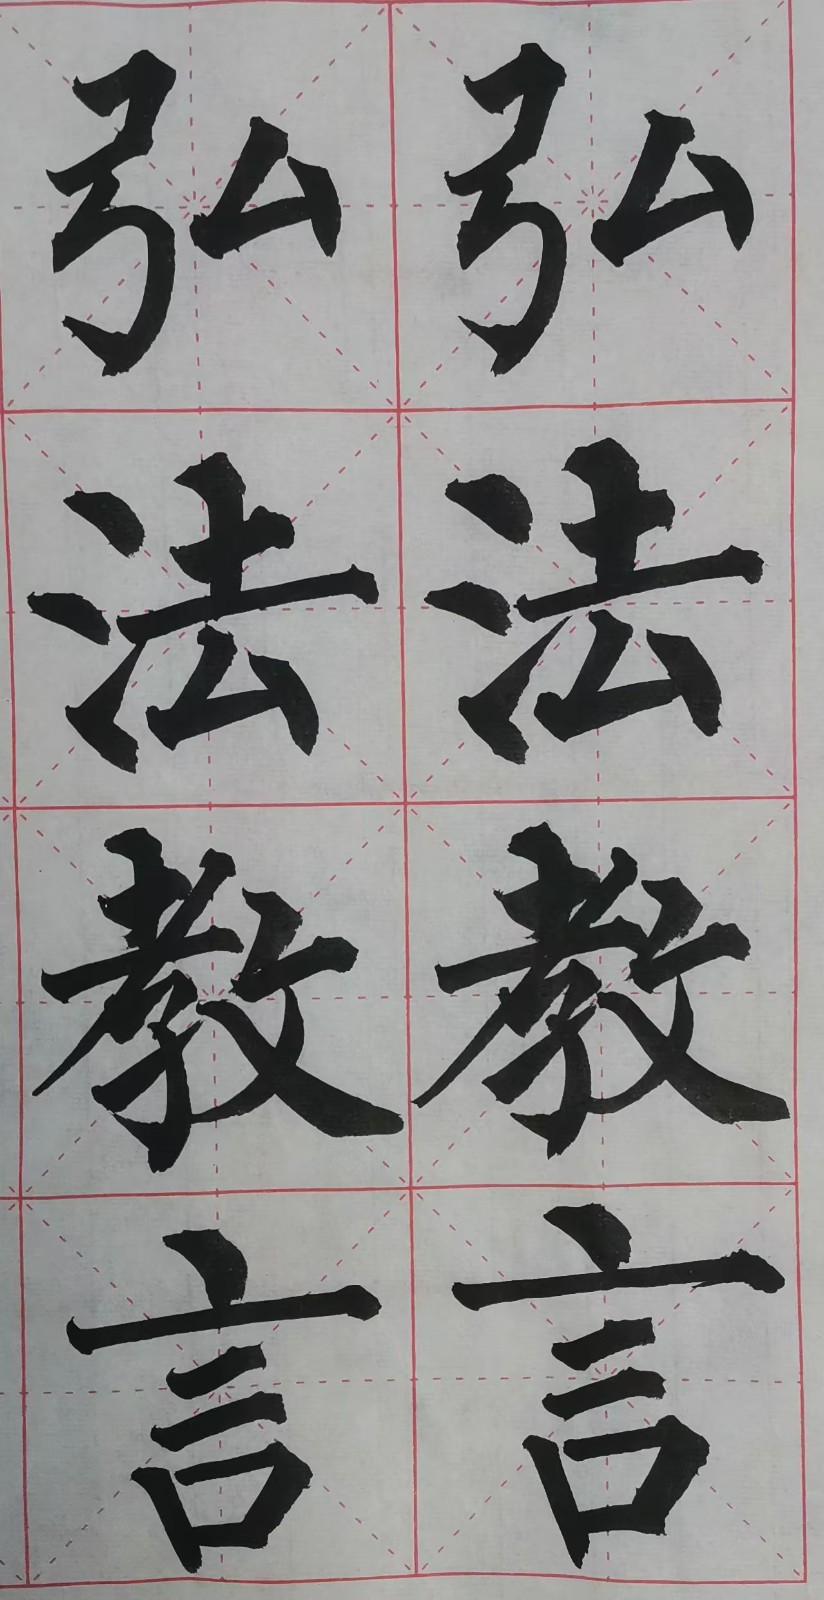 弘法教言
弘法教言